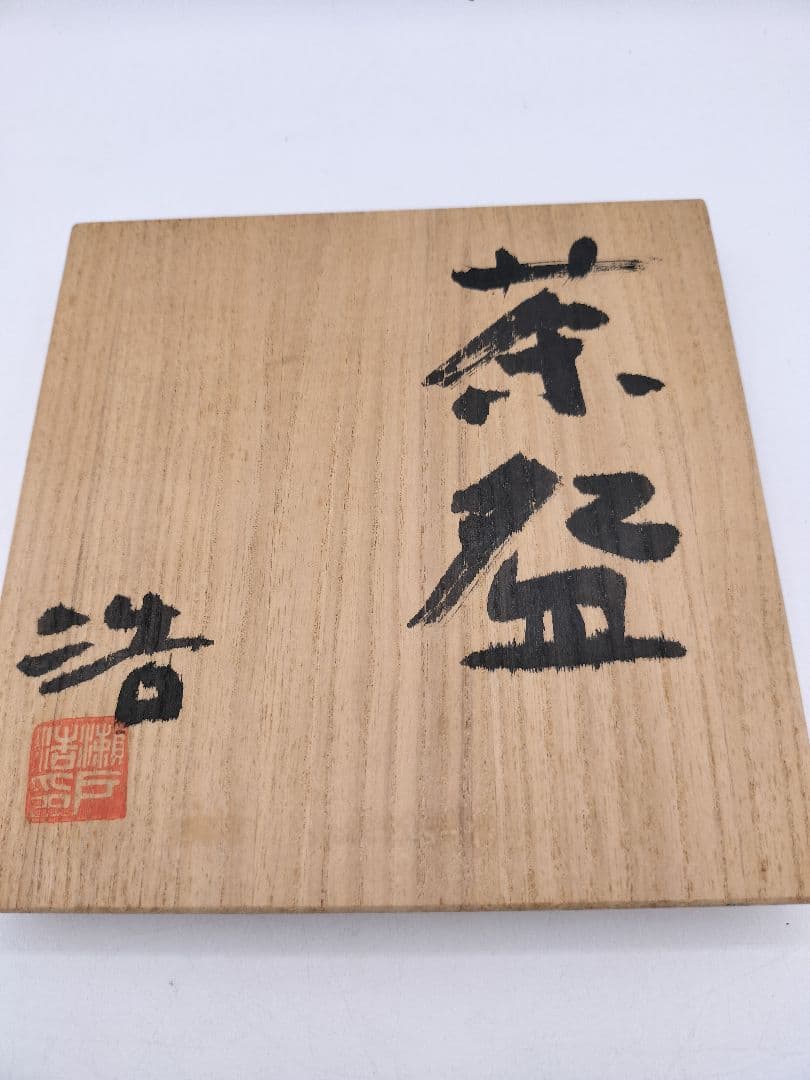 茶盌
浩
瀬戸
浩